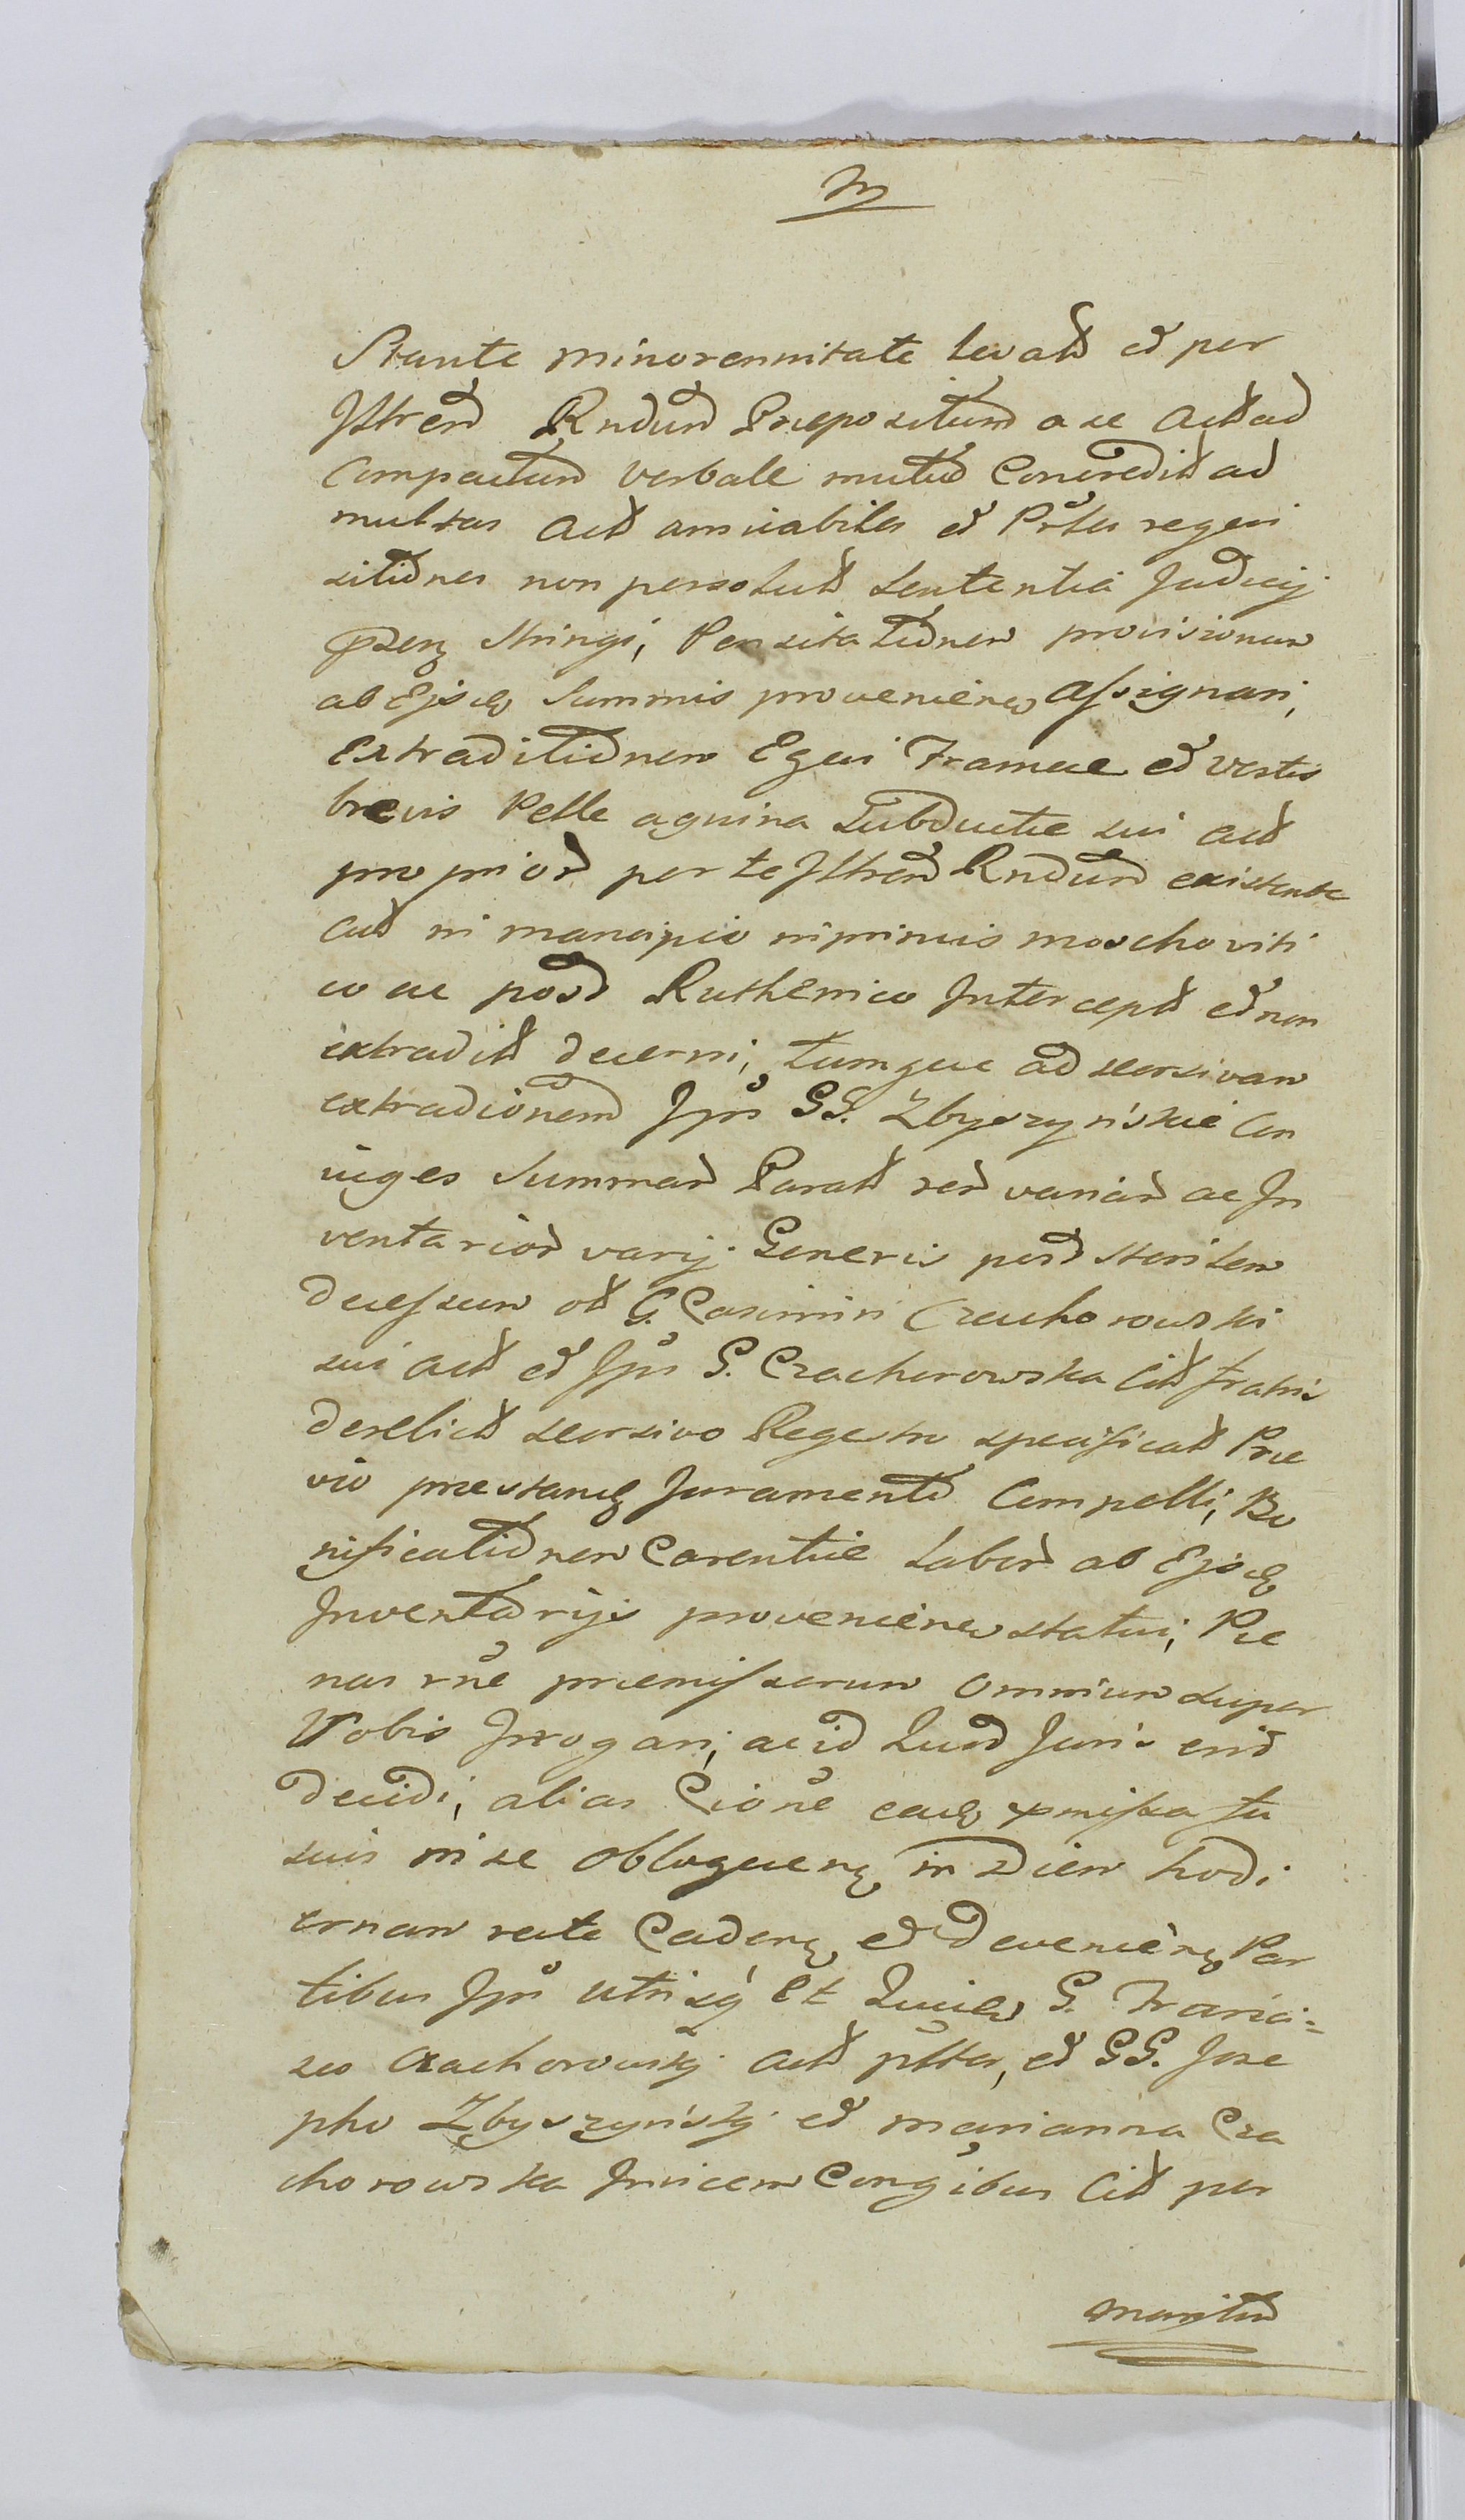 Stante minorennitate levatt et per
Jltrem Rndum Praepositum a se Actt ad
Compactum verbale mutuo Concredit ad
multas Actt amicabiles et Prles reqvi
sitiones non persolutt Sententia Judicij
Pszen Stringi, Pensitationem provisionum
ab Ejsde Summis provenien Assignari,
Extraditionem Eqvi Frameae et vestis
brevis Pelle agnina Subductae sui Actt
propriore per te Jltrem Rndum existente
Actt in mancipio inprimis moschoviti
co ac post Ruthenico Interceptt et non
extraditt decerni, tumque ad seorsivam
extradionem Jpos GG. Zbyszyńskie Con
iuges Summar Paratt rer variar ac In
ventarior varij Generis post sterilem
decessum olt G. Casimiri Czachorowski
sui Actt et Jpos G. Czachorowska Citt fratris
derelictt seorsivo Regestro specificatt Prae
vio praestand Juramento Compelli, Bo
nificationem Carentiae Labor ab Ejsde
Inventarijs provenien statui, Pae
nas rne praemissorum omnium super
Vobis Irrogari, ac id Quod Juris erit
decidi, alias Cione eade pmissa fu
sius in se obloquen in Diem hodi
ernam recte Caden et Devenien Par
tibus Jpis utrisq Et Quide G. Franci=
sco Czachorowskj Actt pltter, et GG. Jose
pho Zbyszyńskj et Marianna Cza
chorowska Invicem Congibus Citt per
maritum